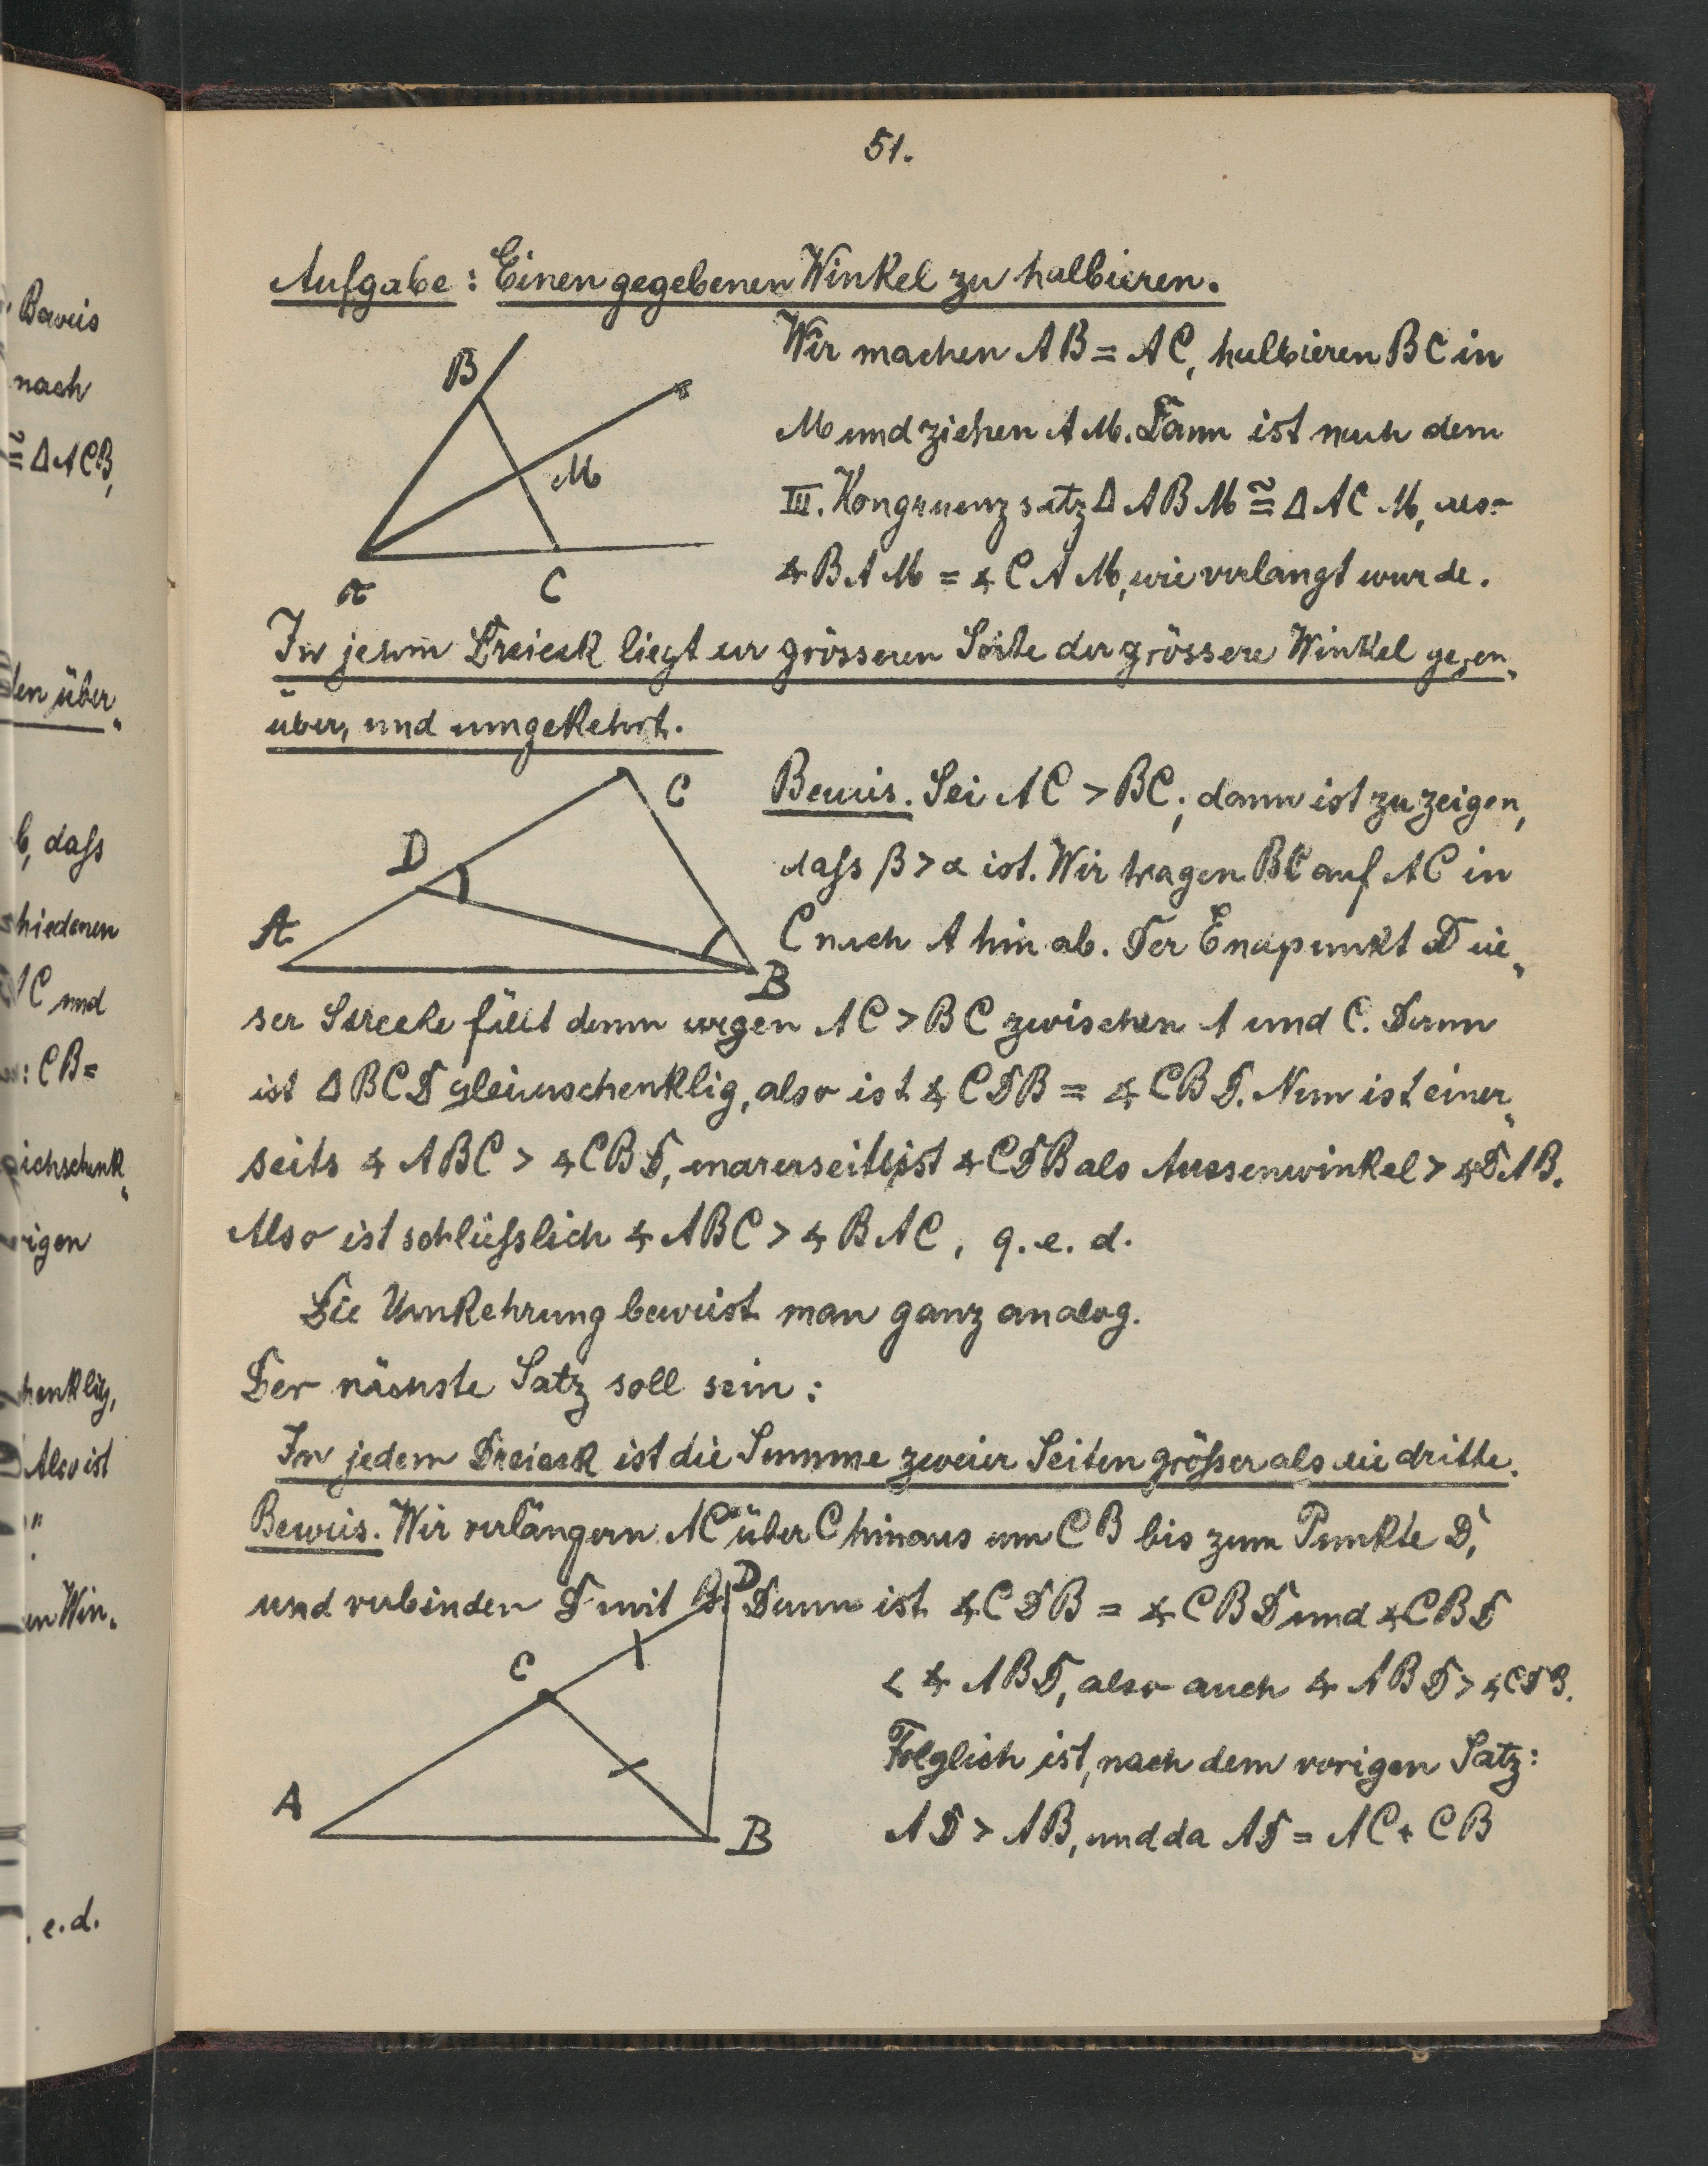 51.
Aufgabe: Einen gegebenen Winkel zu halbieren.
Wir machen AB = AC, halbieren BC in
M und ziehen AM. Dann ist nach dem
III. Kongruenzsatz Δ ABM ≅ Δ ACM, also
∢ BAM = ∢ CAM, wie verlangt wurde.
B
M
A
C
In jedem Dreieck liegt der grösseren Seite der grössere Winkel gegen„
über, und umgekehrt.
Beweis. Sei AC > BC; dann ist zu zeigen,
dass β > α ist. Wir tragen BC auf AC in
C nach A hin ab. Der Endpunkt D die„
C
D
A
B
ser Strecke fällt dann wegen AC > BC zwischen A und C. Dann
ist Δ BCD gleichschenklig, also ist ∢ CDB = ∢ CBD. Nun ist einer„
seits ∢ ABC > ∢ CBD, andrerseits ist ∢ CDB als Aussenwinkel > ∢ DAB.
Also ist schliesslich ∢ ABC > ∢ BAC, q. e. d.
Die Umkehrung beweist man ganz analog.
Der nächste Satz soll sein:
In jedem Dreieck ist die Summe zweier Seiten grösser als die dritte.
Beweis. Wir verlängern AC über C hinaus um CB bis zum Punkte D,
und verbinden D mit B. Dann ist ∢ CDB = ∢ CBD und ∢ CBD
< ∢ ABD, also auch ∢ ABD > ∢ CDB.
Folglich ist, nach dem vorigen Satz:
AD > AB, und da AD = AC + CB
D
C
A
B
Beweis
nach
≅ Δ ACB,
den über„
b, dass
schiedenen
AC und
: CB =
eichschenk„
rigen
henklig,
Also ist
"
en Win„
. e. d.